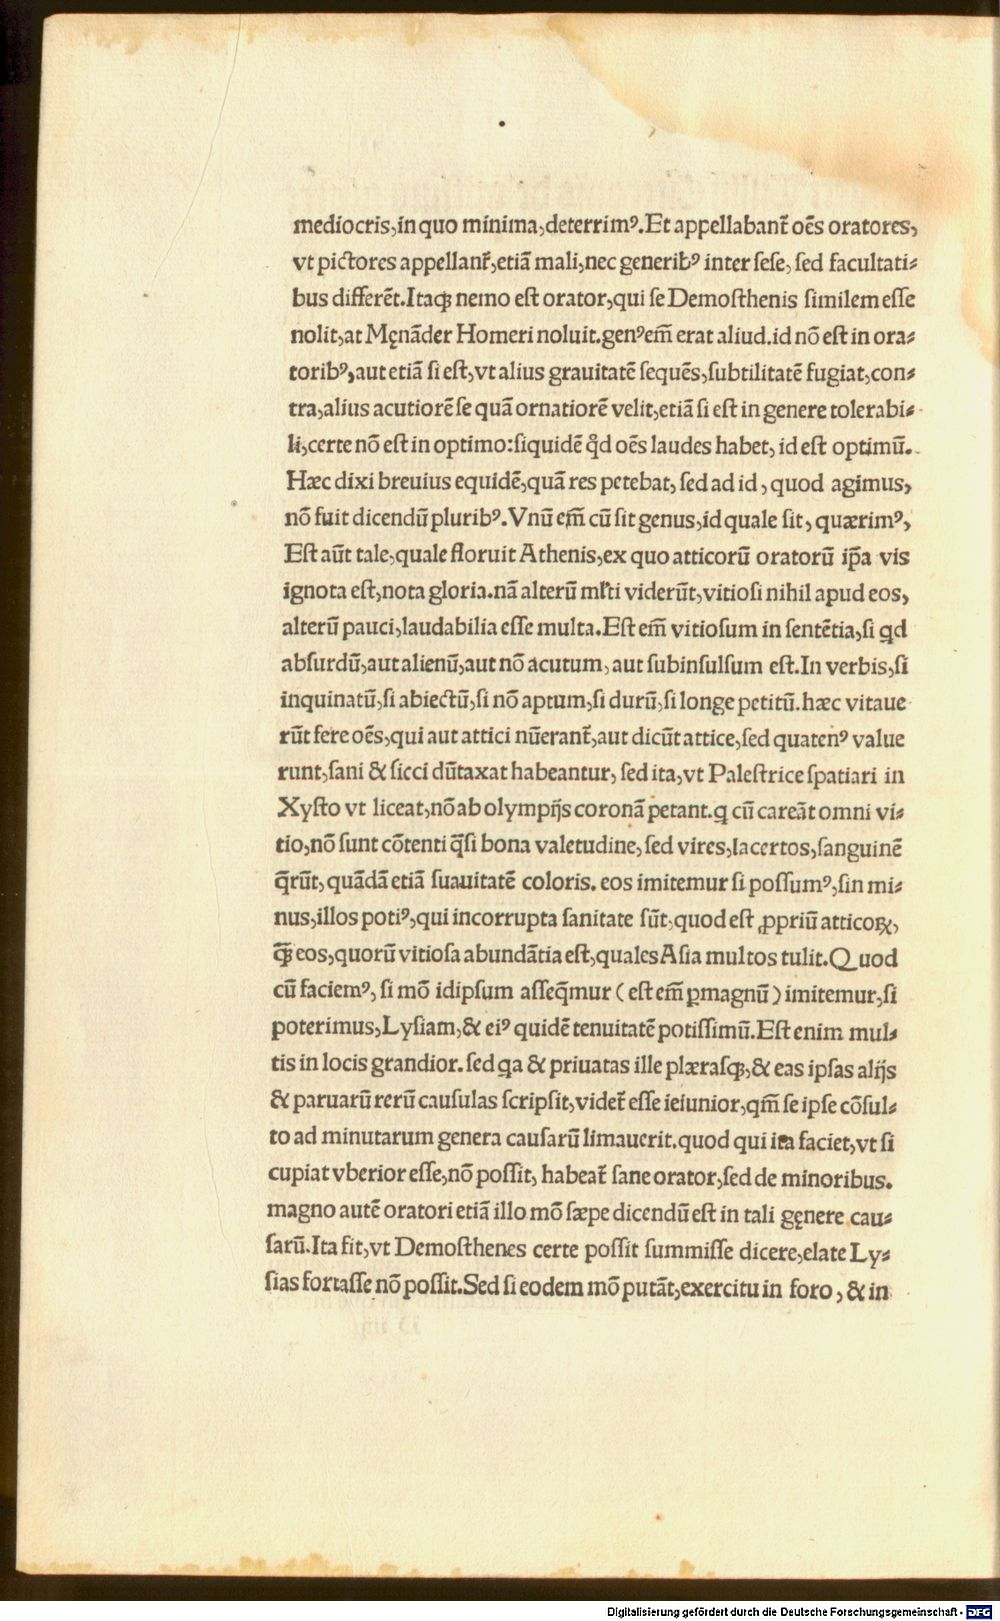 mediocris,in quo minima,deterrimꝰ.Et appellabant᷑ oēs oratores,
vt pictores appellant᷑,etiā mali,nec generibꝰ inter ſeſe, ſed facultati⸗
bus differēt.Itaqꝫ nemo eſt orator,qui ſe Demoſthenis ſimilem eſſe
nolit,at Męnāder Homeri noluit.genꝰ em̄ erat aliud.id nō eſt in ora⸗
toribꝰ,aut etiā ſi eſt,vt alius grauitatē ſequēs,ſubtilitatē fugiat,con⸗
tra,alius acutiorē ſe quā ornatiorē velit,etiā ſi eſt in genere tolerabi⸗
li,certe nō eſt in optimo:ſiquidē qd̄ oēs laudes habet, id eſt optimū.
Hæc dixi breuius equidē,quā res petebat, ſed ad id, quod agimus,
nō fuit dicendū pluribꝰ.Vnū em̄ cū ſit genus,id quale ſit, quærimꝰ,
Eſt aūt tale,quale floruit Athenis,ex quo atticorū oratorū ip̄a vis
ignota eſt,nota gloria.nā alterū ml̄ti viderūt,vitioſi nihil apud eos,
alterū pauci,laudabilia eſſe multa.Eſt em̄ vitioſum in ſentētia,ſi qd
abſurdū,aut alienū,aut nō acutum, aut ſubinſulſum eſt.In verbis,ſi
inquinatū,ſi abiectū,ſi nō aptum,ſi durū,ſi longe petitū.hæc vitaue
rūt fere oēs,qui aut attici nūerant᷑,aut dicūt attice,ſed quatenꝰ value
runt,ſani & ſicci dūtaxat habeantur, ſed ita,vt Paleſtrice ſpatiari in
Xyſto vt liceat,nō ab olympijs coronā petant.q cū careāt omni vi⸗
tio,nō ſunt cōtenti q̄ſi bona valetudine, ſed vires,lacertos,ſanguinē
q̄rūt, quādā etiā ſuauitatē coloris. eos imitemur ſi poſſumꝰ,ſin mi⸗
nus,illos potiꝰ,qui incorrupta ſanitate ſūt,quod eſt ꝓpriū atticoꝝ,
q̄ꝫ eos,quorū vitioſa abundātia eſt,quales Aſia multos tulit.Quod
cū faciemꝰ, ſi mō idipſum aſſeq̄mur (eſt em̄ ꝑmagnū) imitemur,ſi
poterimus,Lyſiam,& eiꝰ quidē tenuitatē potiſſimū.Eſt enim mul⸗
tis in locis grandior.ſed qa & priuatas ille plæraſqꝫ,& eas ipſas alijs
& paruarū rerū cauſulas ſcripſit,videt᷑ eſſe ieiunior,qm̄ ſe ipſe cōſul⸗
to ad minutarum genera cauſarū limauerit.quod qui ita faciet,vt ſi
cupiat vberior eſſe,nō poſſit, habeat᷑ ſane orator,ſed de minoribus.
magno autē oratori etiā illo mō ſæpe dicendū eſt in tali gęnere cau⸗
ſarū.Ita fit,vt Demoſthenes certe poſſit ſummiſſe dicere,elate Ly⸗
ſias fortaſſe nō poſſit.Sed ſi eodem mō putāt,exercitu in foro, & in
Digitalisierung gefördert durch die Deutsche Forschungsgemeinschaft - DFG